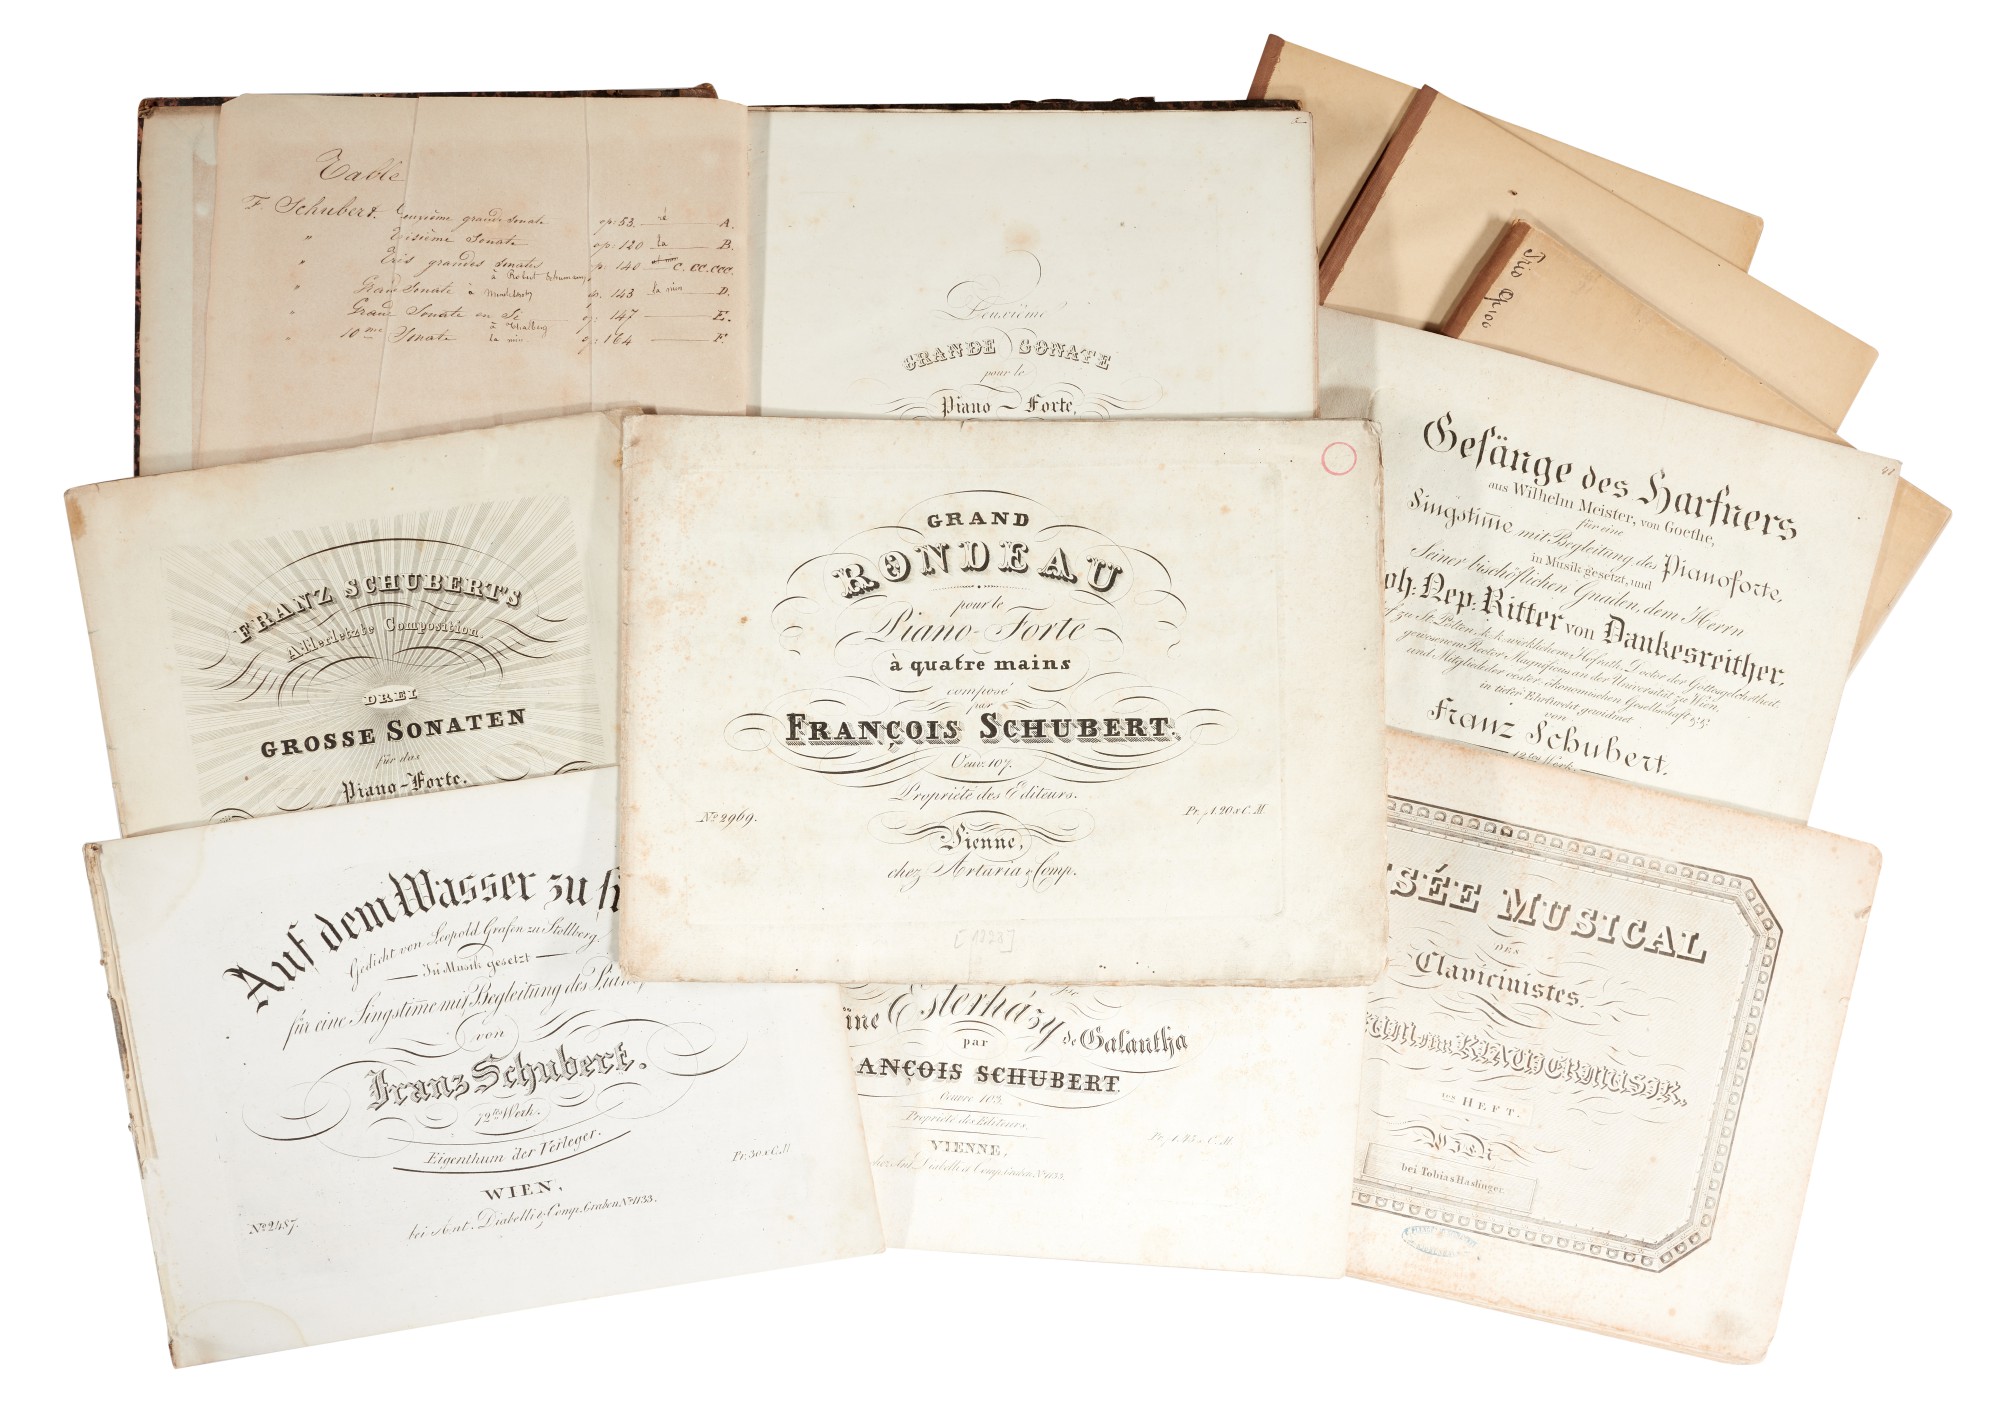 Table
F. Schubert. Deuxième grande sonate op: 53. ré A.
" Troisième Sonate op: 120 la B.
" Trois grandes sonates op: 140 C. CC. CCC.
à Robert Schumann
" Grande Sonate à Mendelssohn op. 143 la min D.
" Grande Sonate en Si op: 147 E.
à Thalberg
" 10me Sonate la min. op 164 F.
Deuxième
GRANDE SONATE
pour le
Piano-Forte,
Trio Op. 100
FRANZ SCHUBERT'S
Allerletzte Composition.
DREI
GROSSE SONATEN
für das
Piano-Forte.
GRAND
RONDEAU
pour le
Piano-Forte
à quatre mains
composé
par
FRANÇOIS SCHUBERT.
Oeuv. 107.
Propriété des Editeurs.
No 2969.
Pr. f 1.20 x C. M.
Vienne,
chez Artaria & Comp.
[1828]
Gesänge des Harfners
aus Wilhelm Meister, von Goethe,
für eine
Singstimme mit Begleitung des Pianoforte,
in Musik gesetzt, und
Seiner bischöflichen Gnaden, dem Herrn
oh: Nep: Ritter von Dankesreither,
zu St. Pölten, k. k. wirklichem Hofrath, Doctor der Gottesgelehrtheit.
gewesenem Rector Magnificus an der Universität zu Wien,
und Mitgliede der oester: ökonomischen Gesellschaft &. &.
in tiefer Ehrfurcht gewidmet
von
Franz Schubert.
12tes Werk.
Auf dem Wasser zu
Gedicht von Leopold Grafen zu Stollberg.
In Musik gesetzt
für eine Singstimme mit Begleitung des Piano
von
Franz Schubert.
72tes Werk.
Eigenthum der Verleger.
No 2487.
Pr. 30 x C. M
WIEN,
bei Ant. Diabelli & Comp. Graben No 1133.
ine Esterházy de Galantha
par
ANÇOIS SCHUBERT.
Oeuvre 103.
Propriété des Editeurs.
Pr. f 1.45 x C. M.
VIENNE,
chez Ant. Diabelli & Comp. Graben No 1133.
SÉE MUSICAL
DES
Clavicinistes.
EUM für KLAVIERMUSIK.
HEFT.
WIEN
bei Tobias Haslinger.